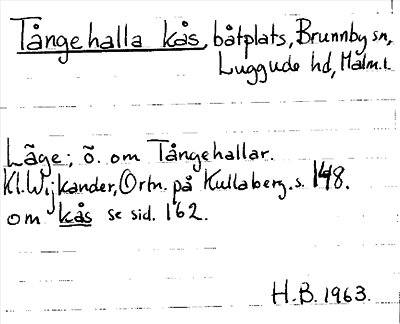 Tångehalla kås, båtplats, Brunnby sn,
Luggude hd, Malm.l.
Läge: ö. om Tångehallar.
Kl. Wijkander, Ortn. på Kullaberg. s. 148.
om kås se sid. 162.
H.B. 1963.